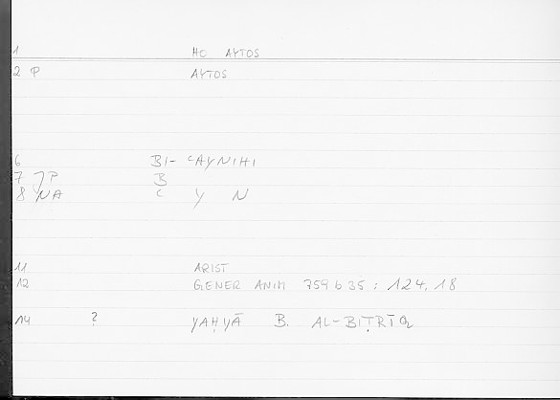 1 HO AYTOS
2 P AYTOS
6 BI- ʿAYNIHI
7 )P B
8 NA ʿ Y N
11 ARIST
12 GENER ANIM 759 b 35 : 124, 18
14 ? YAḤYĀ B. AL-BIṬRĪQ